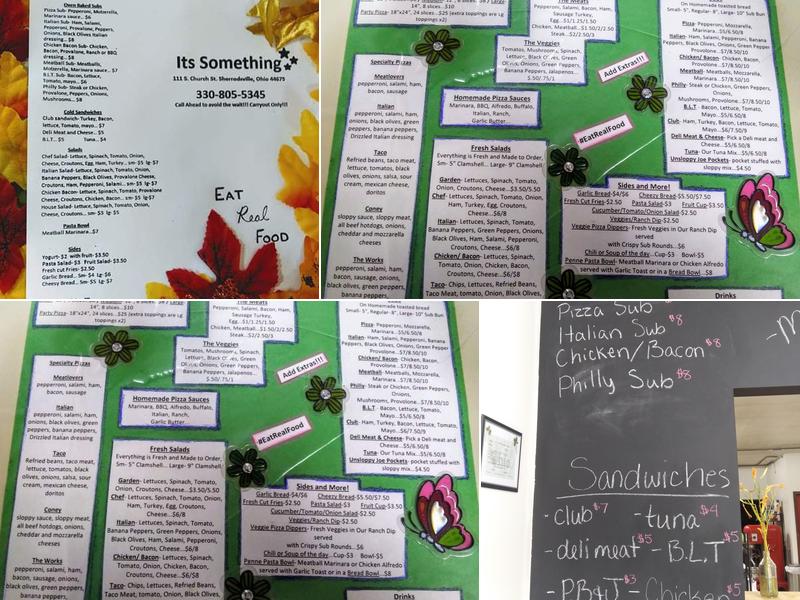 Oven Baked Subs
Pizza Sub- Pepperoni, Mozzarella,
Marinara sauce.. $6
Italian Sub- Ham, Salami,
Pepperoni, Provolone, Peppers,
Onions, Black Olives Italian
dressing... $8
Chicken Bacon Sub- Chicken,
Bacon, Provolone, Ranch or BBQ
dressing... $8
Meatball Sub- Meatballs,
Motterella, Marinara sauce .. $7
B.L.T Sub- Bacon, Lettuce,
Tomato, mayo... $6
Philly Sub- Steak or Chicken,
Provolone, Peppers, Onions,
Mushrooms... $8
Cold Sandwiches
Club sandwich- Turkey, Bacon,
lettuce, Tomato, mayo... $7
Deli Meat and Cheese... $5
B.L.T... $5 Tuna... $4
Salads
Chef Salad- Lettuce, Spinach, Tomato, Onion,
Cheese, Croutons, Egg, Ham, Turkey... sm- $5 lg- $7
Italian Salad- Lettuce, Spinach, Tomato, Onion,
Banana Peppers, Black Olives, Provalone Cheese,
Croutons, Ham, Pepperoni, Salami... sm- $5 lg- $7
Chicken Bacon- Lettuce, Spinach, Tomato, Provolone
Cheese, Croutons, Chicken, Bacon... sm $5 lg- $7
House Salad- Lettuce, Spinach, Tomato, Onion,
Cheese, Croutons... sm- $3 lg- $5
Pasta Bowl
Meatball Marinara.. $7
Sides
Yogurt- $2 with fruit- $3.50
Pasta Salad- $3 Fruit Salad- $3.50
Fresh cut Fries- $2.50
Garlic Bread... Sm- $4 Lg- $6
Cheesy Bread... Sm- $5 Lg- $7
Its Something
111 S. Church St. Sherrodsville, Ohio 44675
330-805-5345
Call Ahead to avoid the wait!!! Carryout Only!!!
EAT
Real
FOOD
14", 8 slices...$10
Party Pizza- 18"x24", 24 slices...$25 (extra toppings are Lg
toppings x2)
Specialty Pizzas
Meatlovers
pepperoni, salami, ham,
bacon, sausage
Italian
pepperoni, salami, ham,
onions, black olives, green
peppers, banana peppers,
Drizzled Italian dressing
Taco
Refried beans, taco meat,
lettuce, tomato, black
olives, onions, salsa, sour
cream, mexican cheese,
doritos
Coney
sloppy sauce, sloppy meat,
all beef hotdogs, onions,
cheddar and mozzarella
cheeses
The Works
pepperoni, salami, ham,
bacon, sausage, onions,
black olives, green peppers,
banana peppers, mushrooms
The Meats
Pepperoni, Salami, Bacon, Ham,
Sausage Turkey,
Egg...$1/1.25/1.50
Chicken, Meatball...$1.50/2/2.50
Steak...$2/2.50/3
The Veggies
Tomato, Mushrooms, Spinach,
Lettuce, Black Olives, Green
Onions, Green Peppers,
Banana Peppers, Jalapenos...
$.50/.75/1
Homemade Pizza Sauces
Marinara, BBQ, Alfredo, Buffalo,
Italian, Ranch,
Garlic Butter...
Add Extras!!!
#EatRealFood
Fresh Salads
Everything is Fresh and Made to Order,
Sm- 5" Clamshell... Large- 9" Clamshell
Garden- Lettuces, Spinach, Tomato,
Onion, Croutons, Cheese...$3.50/5.50
Chef- Lettuces, Spinach, Tomato, Onion,
Ham, Turkey, Egg, Croutons,
Cheese...$6/8
Italian- Lettuces, Spinach, Tomato,
Banana Peppers, Green Peppers, Onions,
Black Olives, Ham, Salami, Pepperoni,
Croutons, Cheese...$6/8
Chicken/ Bacon- Lettuces, Spinach,
Tomato, Onion, Croutons,
Cheese...$6/$8
Taco- Chips, Lettuces, Refried Beans,
Taco Meat, tomato, Onion, Black Olives,
On Homemade toasted bread
Small- 5", Regular- 8", Large- 10" Sub Bun
Pizza- Pepperoni, Mozzarella,
Marinara...$5/6.50/8
Italian- Ham, Salami, Pepperoni, Onions,
Banana Peppers, Black Olives, Green Peppers,
Provolone...$7/8.50/10
Chicken/ Bacon- Chicken, Bacon,
Provolone...$7/8.50/10
Meatball- Meatballs, Mozzarella,
Marinara...$7/8.50/10
Philly- Steak or Chicken, Green Peppers,
Onions,
Mushrooms, Provolone...$7/8.50/10
B.L.T- Bacon, Lettuce, Tomato,
Mayo...$5/6.50/8
Club- Ham, Turkey, Bacon, Lettuce, Tomato,
Mayo...$6/7.50/9
Deli Meat & Cheese- Pick a Deli meat and
Cheese...$5/6.50/8
Tuna- Our Tuna Mix...$5/6.50/8
Unsloppy Joe Pockets- pocket stuffed with
sloppy mix...$4.50
Sides and More!
Garlic Bread-$4/$6 Cheezy Bread-$5.50/$7.50
Fresh Cut Fries-$2.50 Pasta Salad-$3 Fruit Cup-$3.50
Cucumber/Tomato/Onion Salad-$2.50
Veggies/Ranch Dip-$2.50
Veggie Pizza Dippers- Fresh Veggies in Our Ranch Dip
served
with Crispy Sub Rounds...$6
Chili or Soup of the day...Cup-$3 Bowl-$5
Penne Pasta Bowl- Meatball Marinara or Chicken Alfredo
served with Garlic Toast or in a Bread Bowl...$8
Drinks
Party Pizza- 18"x24", 24 slices...$25 (extra toppings are Lg
toppings x2)
Specialty Pizzas
Meatlovers
pepperoni, salami, ham,
bacon, sausage
Italian
pepperoni, salami, ham,
onions, black olives, green
peppers, banana peppers,
Drizzled Italian dressing
Taco
Refried beans, taco meat,
lettuce, tomato, black
olives, onions, salsa, sour
cream, mexican cheese,
doritos
Coney
sloppy sauce, sloppy meat,
all beef hotdogs, onions,
cheddar and mozzarella
cheeses
The Works
pepperoni, salami, ham,
bacon, sausage, onions,
black olives, green peppers,
The Meats
Pepperoni, Salami, Bacon, Ham,
Sausage Turkey,
Egg...$1/1.25/1.50
Chicken, Meatball...$1.50/2/2.50
Steak...$2/2.50/3
The Veggies
Homemade Pizza Sauces
Marinara, BBQ, Alfredo, Buffalo,
Italian, Ranch,
Garlic Butter...
Add Extras!!!
#EatRealFood
Fresh Salads
Sides and More!
Drinks
Pizza Sub
Italian Sub $8
Chicken/Bacon $8
Philly Sub $8
Sandwiches
- club $7 - tuna $4
- deli meat $5 - B.L.T $5
- PB&J $3 - Chicken $5